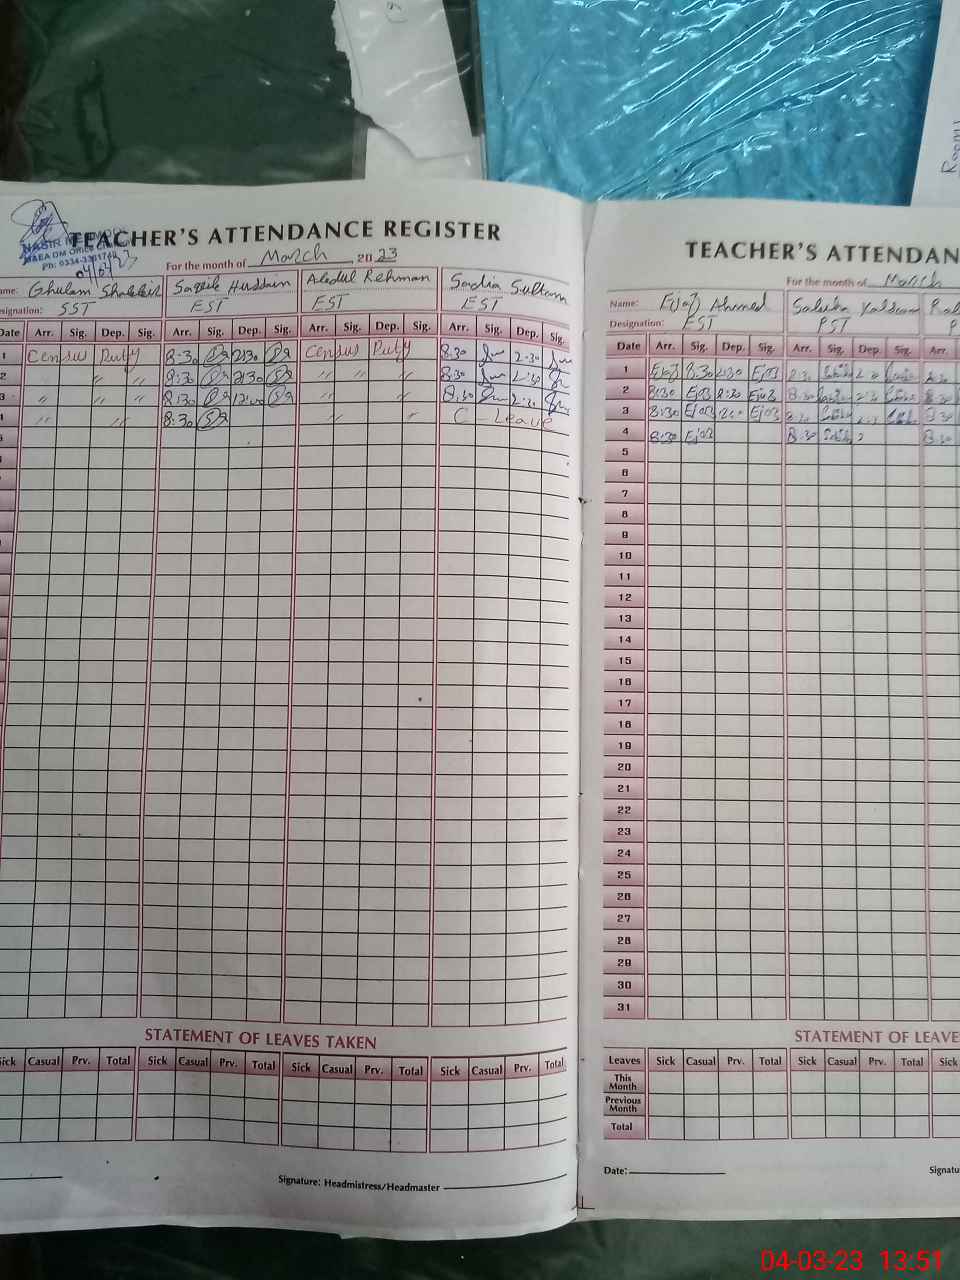 TEACHER'S ATTENDANCE REGISTER
For the month of March 2023
Ghulam
Hussain
Abdul Rehman
Sadia Sultana
SST
EST
EST
EST
Date Arr. Sig. Dep. Sig. Arr. Sig. Dep. Sig. Arr. Sig. Dep. Sig. Arr. Sig. Dep. Sig.
1 Census Duty 8:30 2:30 Census Duty 8:30 2:30
2 〃 〃 8:30 2:30 〃 〃 〃 8:30 2:30
3 〃 〃 〃 8:30 12:00 〃 〃 〃 8:30
〃 〃 8:30 〃 〃 C - Leave
STATEMENT OF LEAVES TAKEN
Sick Casual Prv. Total Sick Casual Prv. Total Sick Casual Prv. Total Sick Casual Prv. Total
Signature: Headmistress/Headmaster
TEACHER'S ATTENDAN
For the month of March
Name: Ejaz Ahmed
Designation: EST PST
Date Arr. Sig. Dep. Sig. Arr. Sig. Dep. Sig. Arr.
1 Ejaz 8:30 2:30 Ejaz
2 8:30 Ejaz 2:30 Ejaz 8:30
3 8:30 Ejaz Ejaz 8:30
4 8:30 Ejaz 8:30 8:30
5
6
7
8
9
10
11
12
13
14
15
16
17
18
19
20
21
22
23
24
25
26
27
28
29
30
31
STATEMENT OF LEAVE
Leaves Sick Casual Prv. Total Sick Casual Prv. Total Sick
This Month
Previous Month
Total
Date:
Signatu
04-03-23 13:51